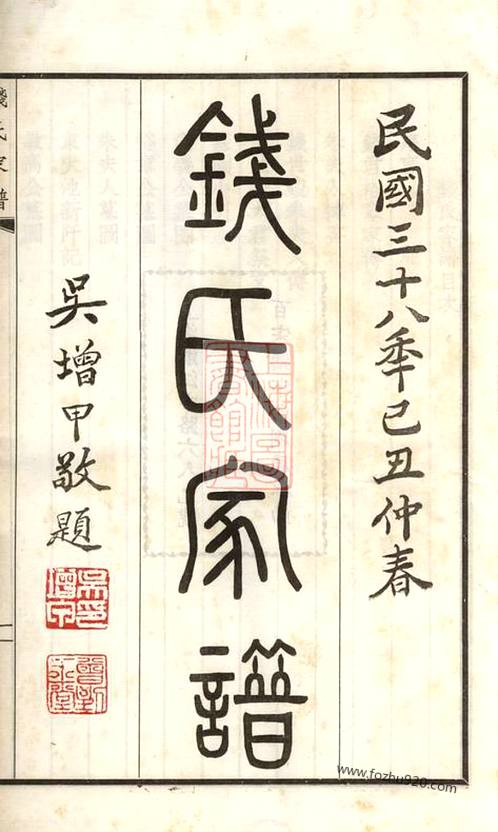 民國三十八年己丑仲春
錢氏家譜
吳增甲敬題
錢氏家譜
www.fozhu920.com